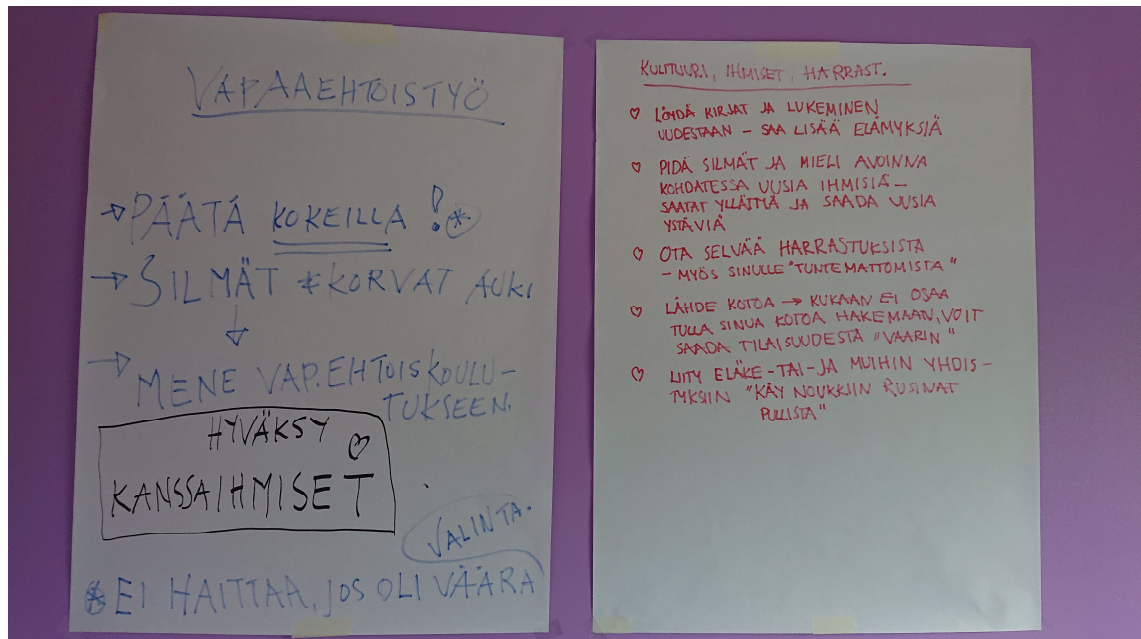 VAPAAEHTOISTYÖ
→ PÄÄTÄ KOKEILLA ! *
→ SILMÄT & KORVAT AUKI
↓
→ MENE VAP.EHTOISKOULU-
TUKSEEN.
HYVÄKSY ♡
KANSSAIHMISET
VALINTA.
* EI HAITTAA, JOS OLI VÄÄRÄ
KULTTUURI, IHMISET, HARRAST.
♡ LÖYDÄ KIRJAT JA LUKEMINEN
UUDESTAAN – SAA LISÄÄ ELÄMYKSIÄ
♡ PIDÄ SILMÄT JA MIELI AVOINNA
KOHDATESSA UUSIA IHMISIÄ –
SAATAT YLLÄTTYÄ JA SAADA UUSIA
YSTÄVIÄ
♡ OTA SELVÄÄ HARRASTUKSISTA
– MYÖS SINULLE "TUNTEMATTOMISTA"
♡ LÄHDE KOTOA → KUKAAN EI OSAA
TULLA SINUA KOTOA HAKEMAAN, VOIT
SAADA TILAISUUDESTA "VAARIN"
♡ LIITY ELÄKE-TAI-JA MUIHIN YHDIS-
TYKSIIN "KÄY NOUKKIIN RUSINAT
PULLISTA"